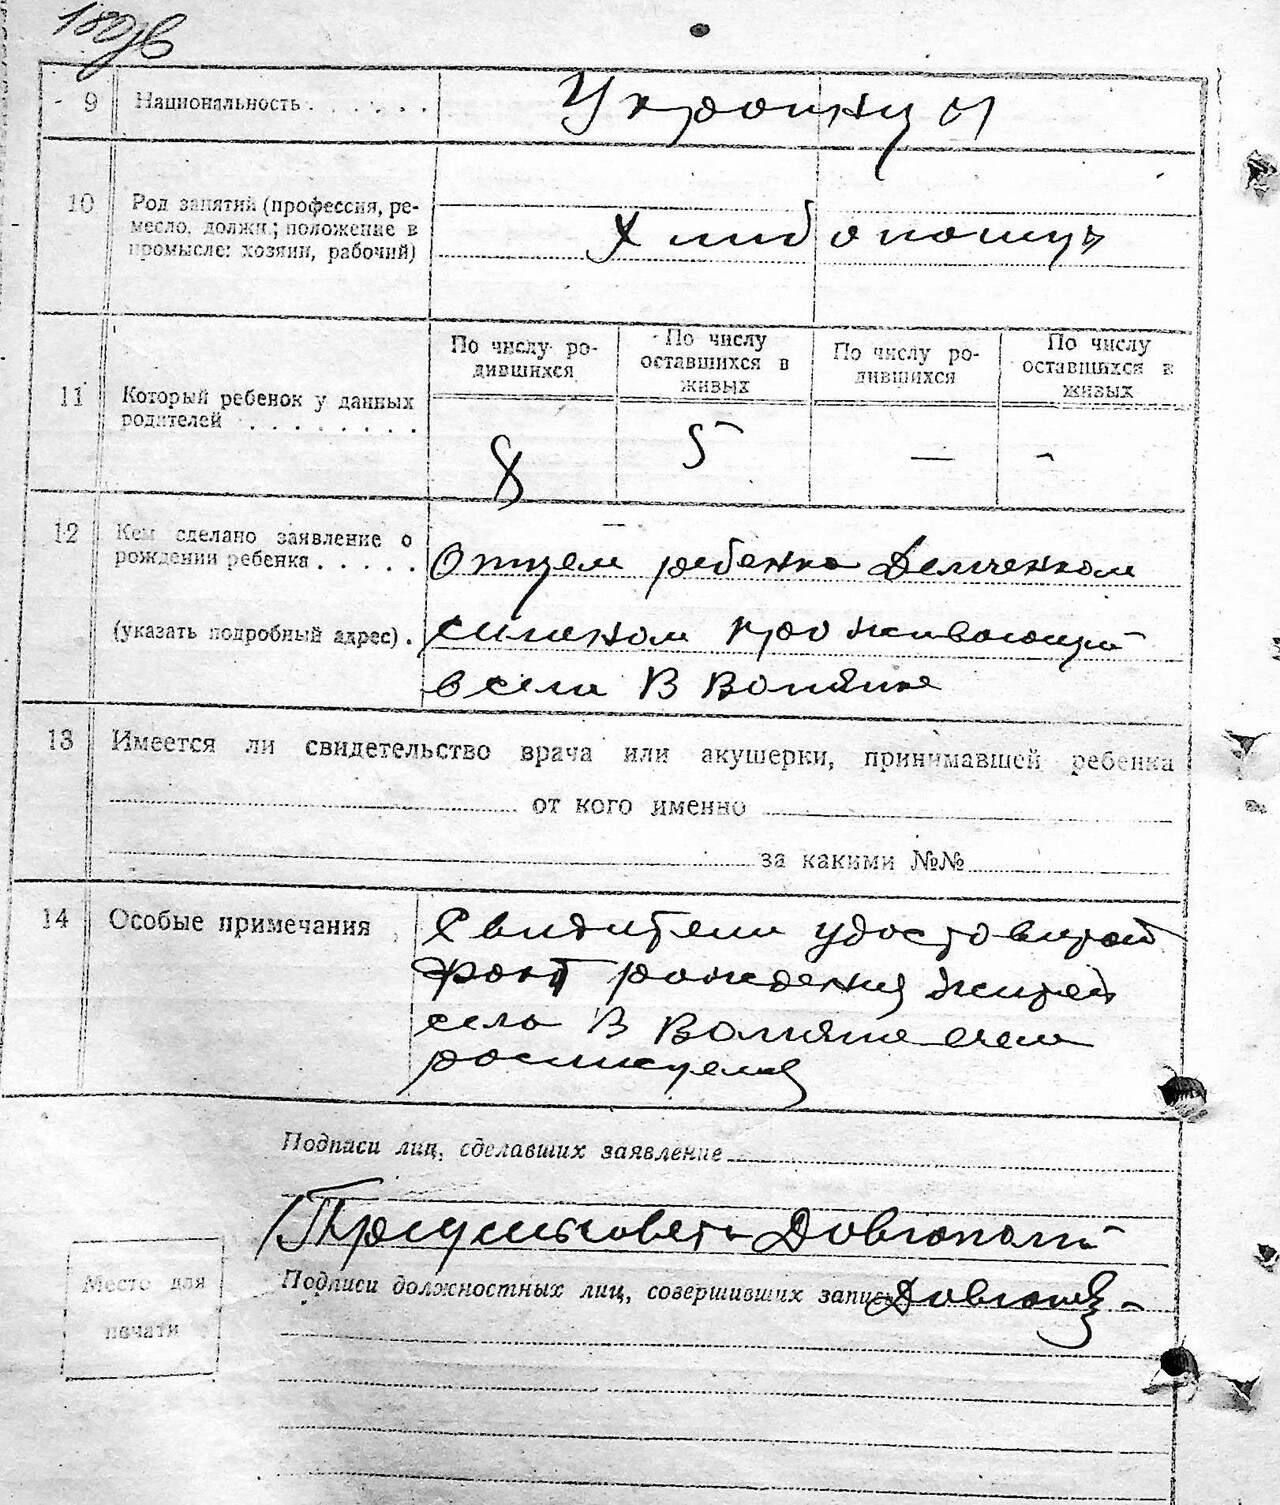 9 Национальность . . . . . . Украинцы
10 Род занятий (профессия, ре-
месло, должн.; положение в
промысле: хозяин, рабочий)
Хлибопашць
По числу ро-
дившихся
По числу
оставшихся в
живых
По числу ро-
дившихся
По числу
оставшихся в
живых
11 Который ребенок у данных
родителей . . . . . . . .
8 5 — -
12 Кем сделано заявление о
рождении ребенка . . . . .
Отцем ребенка Демченком
(указать подробный адрес) .
проживающий
в села В Вольянке
13 Имеется ли свидетельство врача или акушерки, принимавшей ребенка
от кого именно
за какими №№
14 Особые примечания
Свидители удостовирой
факт рождения жителі
села В
Подписи лиц, сделавших заявление
Довгополий
Подписи должностных лиц, совершивших запись
Место для
печати